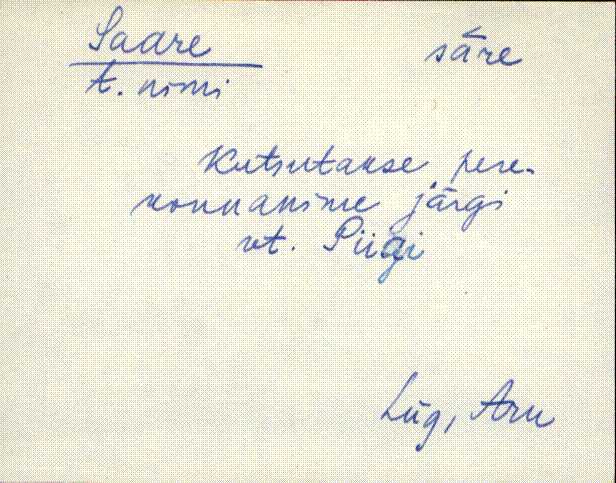 Saare sāre
t. nimi
Kutsutakse pere-
konnanime järgi
vt. Piigi
Lüg, Aru